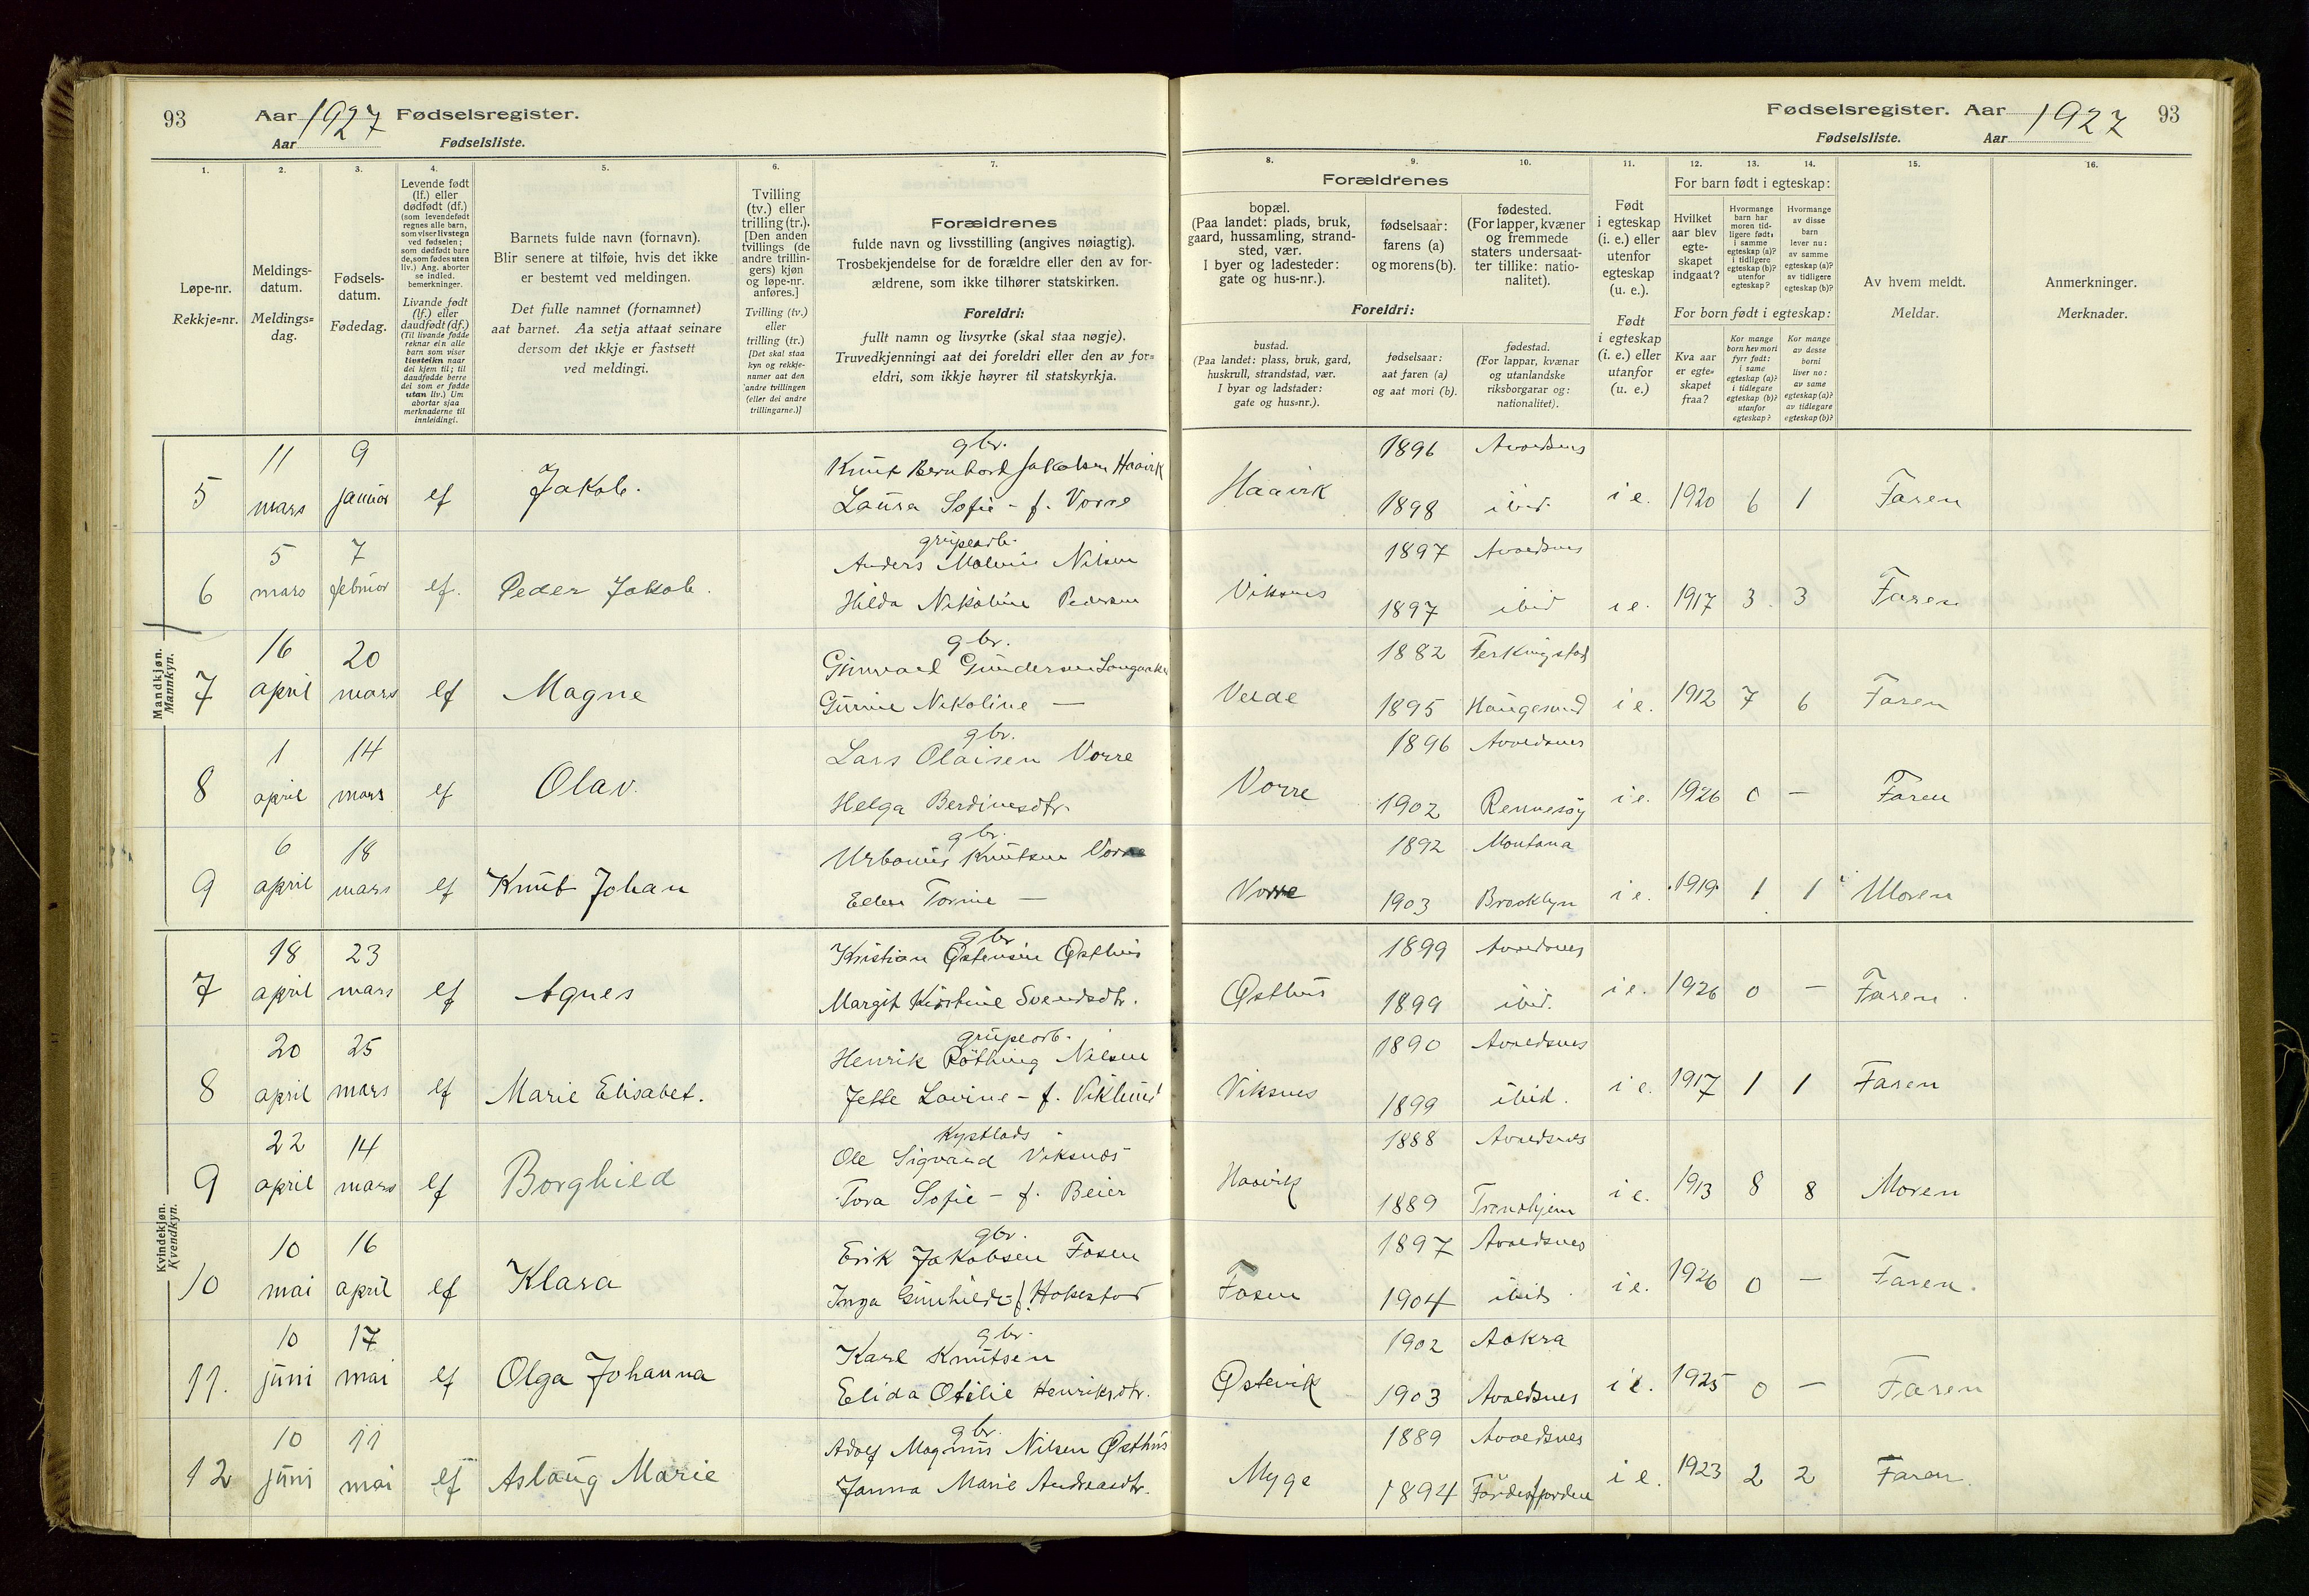 93
Aar 1927 Fødselsregister.
Aar Fødselsliste.
Fødselsregister. Aar 1927 93
Fødselsliste. Aar
1. 2. 3. 4. 5. 6. 7.
Løpe-nr.
Rekkje=nr.
Meldings-
datum.
Meldings=
dag.
Fødsels-
datum.
Fødedag.
Levende født
(lf.) eller
dødfødt (df.)
(som levendefødt
regnes alle barn,
som viser livstegn
ved fødselen;
som dødfødt bare
de, som fødes uten
liv.) Ang. aborter
se indled.
bemerkninger.
Livande født
(lf.) eller
daudfødt (df.)
(Til livande fødde
reknar ein alle
barn som viser
livsteikn naar
dei kjem til; til
daudfødde berre
dei som er fødde
utan liv.) Um
abortar sjaa
merknaderne til
innleidingi.
Barnets fulde navn (fornavn).
Blir senere at tilføie, hvis det ikke
er bestemt ved meldingen.
Det fulle namnet (fornamnet)
aat barnet. Aa setja attaat seinare
dersom det ikkje er fastsett
ved meldingi.
Tvilling
(tv.) eller
trilling (tr.).
[Den anden
tvillings (de
andre trillin-
gers) kjøn
og løpe-nr.
anføres.]
Tvilling (tv.)
eller
trilling (tr.)
[Det skal staa
kyn og rekkje-
numer aat den
andre tvillingen
(eller dei andre
trillingarne.)]
Forældrenes
fulde navn og livsstilling (angives nøiagtig).
Trosbekjendelse for de forældre eller den av for-
ældrene, som ikke tilhører statskirken.
Foreldri:
fullt namn og livsyrke (skal staa nøgje).
Truvedkjenningi aat dei foreldri eller den av for=
eldri, som ikkje høyrer til statskyrkja.
8. 9. 10. 11. 12. 13. 14. 15. 16.
Forældrenes
bopæl.
(Paa landet: plads, bruk,
gaard, hussamling, strand-
sted, vær.
I byer og ladesteder:
gate og hus-nr.).
fødselsaar:
farens (a)
og morens (b).
fødested.
(For lapper, kvæner
og fremmede
staters undersaat-
ter tillike: natio-
nalitet).
Foreldri:
bustad.
(Paa landet: plass, bruk, gard,
huskrull, strandstad, vær.
I byar og ladstader:
gate og hus=nr.).
fødselsaar:
aat faren (a)
og aat mori (b).
fødestad.
(For lappar, kvænar
og utanlandske
riksborgarar og:
nationalitet).
Født
i egteskap
(i. e.) eller
utenfor
egteskap
(u. e.).
Født
i egteskap
(i. e.) eller
utanfor
(u. e.)
For barn født i egteskap:
Hvilket
aar blev
egte-
skapet
indgaat?
Hvormange
barn har
moren tid-
ligere født:
i samme
egteskap (a)?
i tidligere
egteskap (b)?
utenfor
egteskap?
Hvormange
av disse
barn
lever nu:
av samme
egteskap (a)?
av tidligere
egteskap (b)?
For born født i egteskap:
Kva aar
er egte=
skapet
fraa?
Kor mange
born hev mori
fyrr født:
i same
egteskap (a)?
i tidlegare
egteskap (b)?
utanfor
egteskap?
Kor mange
av desse
borni
liver no:
av same
egteskap (a)?
av tidlegare
egteskap (b)?
Av hvem meldt.
Meldar.
Anmerkninger.
Merknader.
Mandkjøn.
Mannkyn.
5 11 mars 9 januar lf Jakob.
gbr.
Knut Bernhard Jakobsen Haavik
Laura Sofie - f. Vorre
Haavik 1896 Avaldsnes
1898 ibid. i e. 1920 6 1 Faren
6 5 mars 7 februar lf. Peder Jakob.
grubearb.
Anders Malvin Nilsen
Hilda Nikoline Pedersen
Viksnes 1897 Avaldsnes
1897 ibid i e. 1917 3. 3 Faren
7 16 april 20 mars lf Magne
gbr.
Gunvald Gundersen Langaaker
Gurine Nikoline —
Veide 1882 Ferkingstad
1895 Haugesund i e. 1912 7 6 Faren
8 1 april 14 mars lf Olav.
gbr.
Lars Olaisen Vorre
Helga Berdinesdtr.
Vorre 1896 Avaldsnes
1902 Rennesøy i e. 1926 0 — Faren
9 6 april 18 mars lf Knut Johan
gbr.
Urbanus Knutsen Vorre
Ellen Torine —
Vorre 1892 Montana
1903 Brooklyn i e. 1919. 1 1 Moren
Kvindekjøn.
Kvendkyn.
7 18 april 23 mars lf Agnes
gbr
Kristian Østensen Østhus
Margit Kirstine Svendsdtr.
Østhus 1899 Avaldsnes
1899 ibid. i e. 1926 0 — Faren.
8 20 april 25 mars lf Marie Elisabet.
grubearb.
Henrik Røthing Nilsen
Jette Lovine - f. Viklund
Viksnes 1890 Avaldsnes
1899 ibid. i e. 1917 1 1 Faren
9 22 april 14 mars lf Borghild
Kystlods
Ole Sigvard Viksnes
Tora Sofie - f. Beier
Haavik 1888 Avaldsnes
1889 Trondhjem i e. 1913 8 8 Moren
10 10 mai 16 april lf Klara
gbr.
Erik Jakobsen Fosen
Inga Gunhilde f. Hokestad
Fosen 1897 Avaldsnes
1904 ibid. i e. 1926 0 — Faren.
11. 10 juni 17 mai lf Olga Johanna
gbr.
Karl Knutsen
Elida Otilie Henriksdtr.
Østevik 1902 Aakra
1903 Avaldsnes i e. 1925 0 — Faren
12 10 juni 11 mai lf Aslaug Marie
gbr.
Adolf Magnus Nilsen Østhus
Janna Marie Andreasdtr.
Myge 1889 Avaldsnes
1894 Førdesfjorden i e. 1923 2 2 Faren.